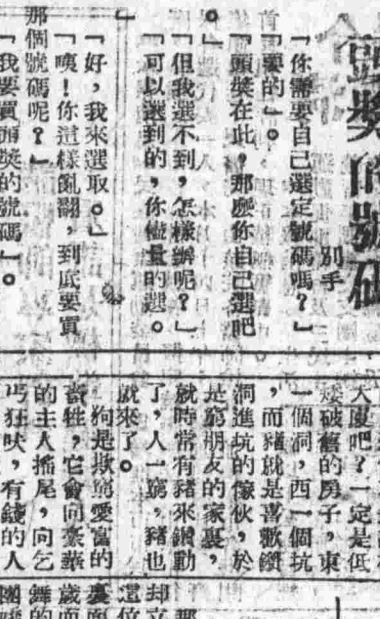 頭獎的號碼
別手
「你需要自己選定號碼嗎？」
「要的」。
「頭獎在此，那麽你自己選吧
。」
「但我選不到，怎樣辦呢？」
「可以選到的，你儘量的選。
」
「好，我來選取。」
「咦！你這樣亂翻，到底要買
那個號碼呢？」
「我要買頭獎的號碼」。
大廈吧？一定是低
矮破舊的房子，東
一個洞，西一個坑
，而豬就是喜歡鑽
洞進坑的傢伙，於
是窮朋友的家裏，
就時常有豬來鑽動
了，人一窮，豬也
就來了。
狗是欺窮愛富的
畜牲，它會向豪華
的主人搖尾，向乞
丐狂吠，有錢的人
那
却立
這位
裏面
歲而
舞的